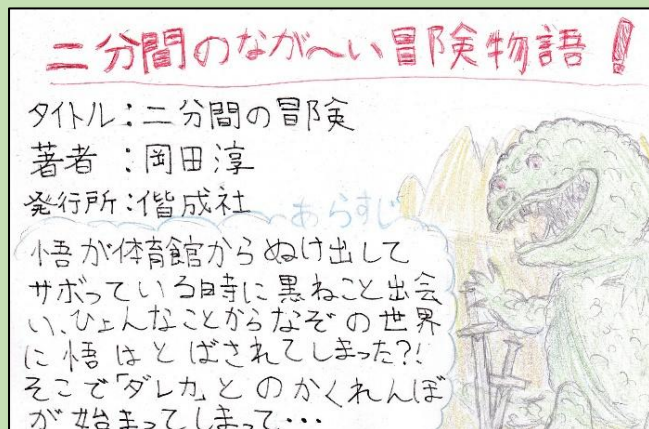 二分間のなが〜い冒険物語!
タイトル:二分間の冒険
著者:岡田淳
発行所:偕成社
あらすじ
悟が体育館からぬけ出して
サボっている時に黒ねこと出会
い、ひょんなことからなぞの世界
に悟はとばされてしまった?!
そこで「ダレカ」とのかくれんぼ
が始まってしまって・・・